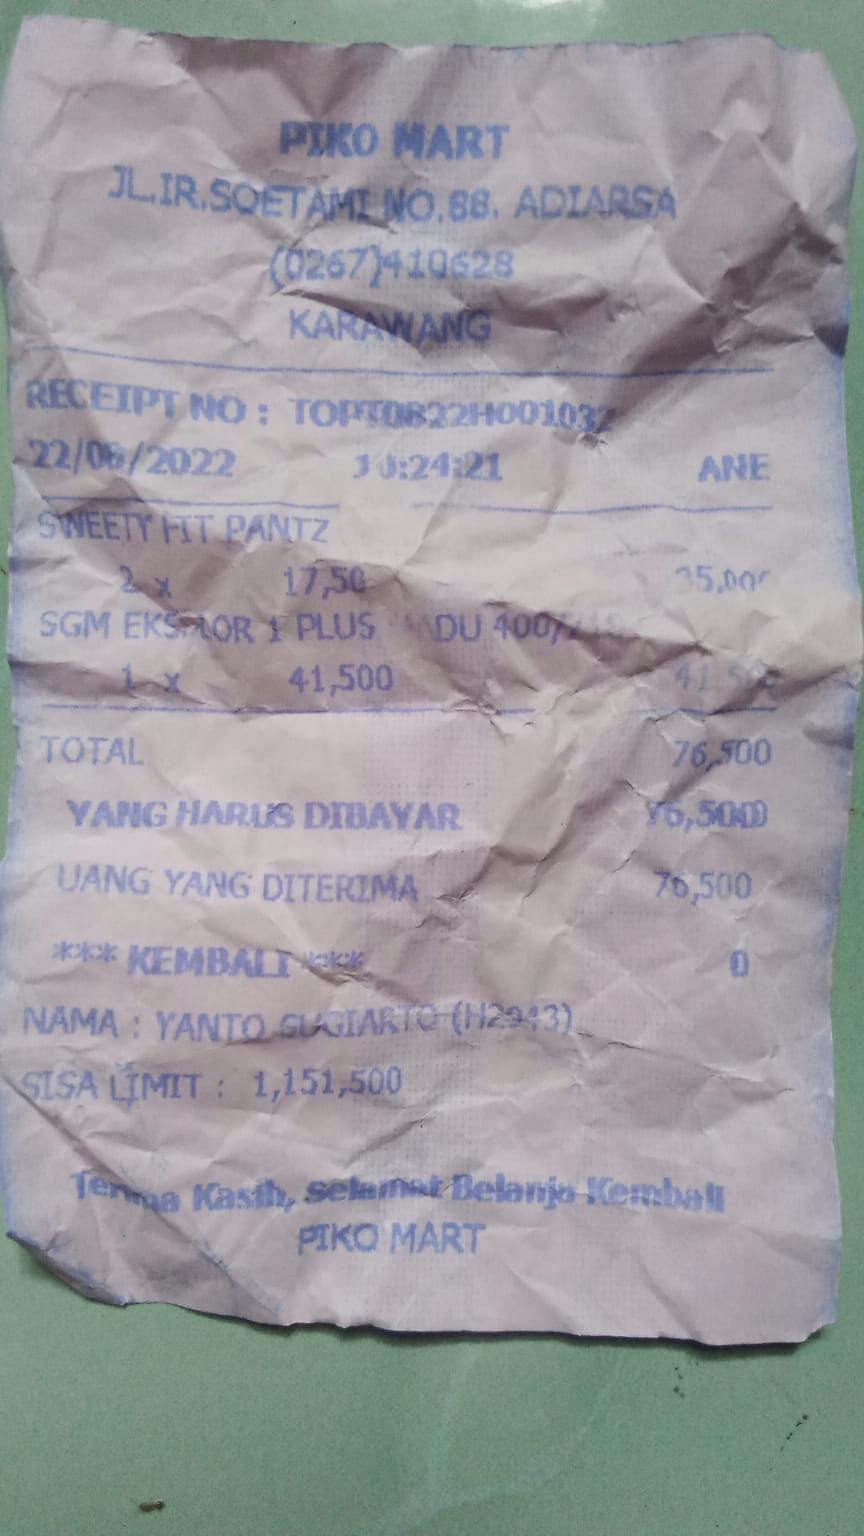 PIKO MART
JL.IR.SOETAMI NO.88. ADIARSA
(0267)410628
KARAWANG
RECEIPT NO : TOPT0822H001032
22/08/2022 10:24:21 ANE
SWEETY FIT PANTZ
2 x 17,50 35,000
SGM EKSPLOR 1 PLUS MADU
1 x 41,500 41,500
TOTAL 76,500
YANG HARUS DIBAYAR 76,500
UANG YANG DITERIMA 76,500
*** KEMBALI *** 0
NAMA : YANTO SUGIARTO (H2943)
SISA LIMIT : 1,151,500
Terima Kasih, selamat Belanja Kembali
PIKO MART